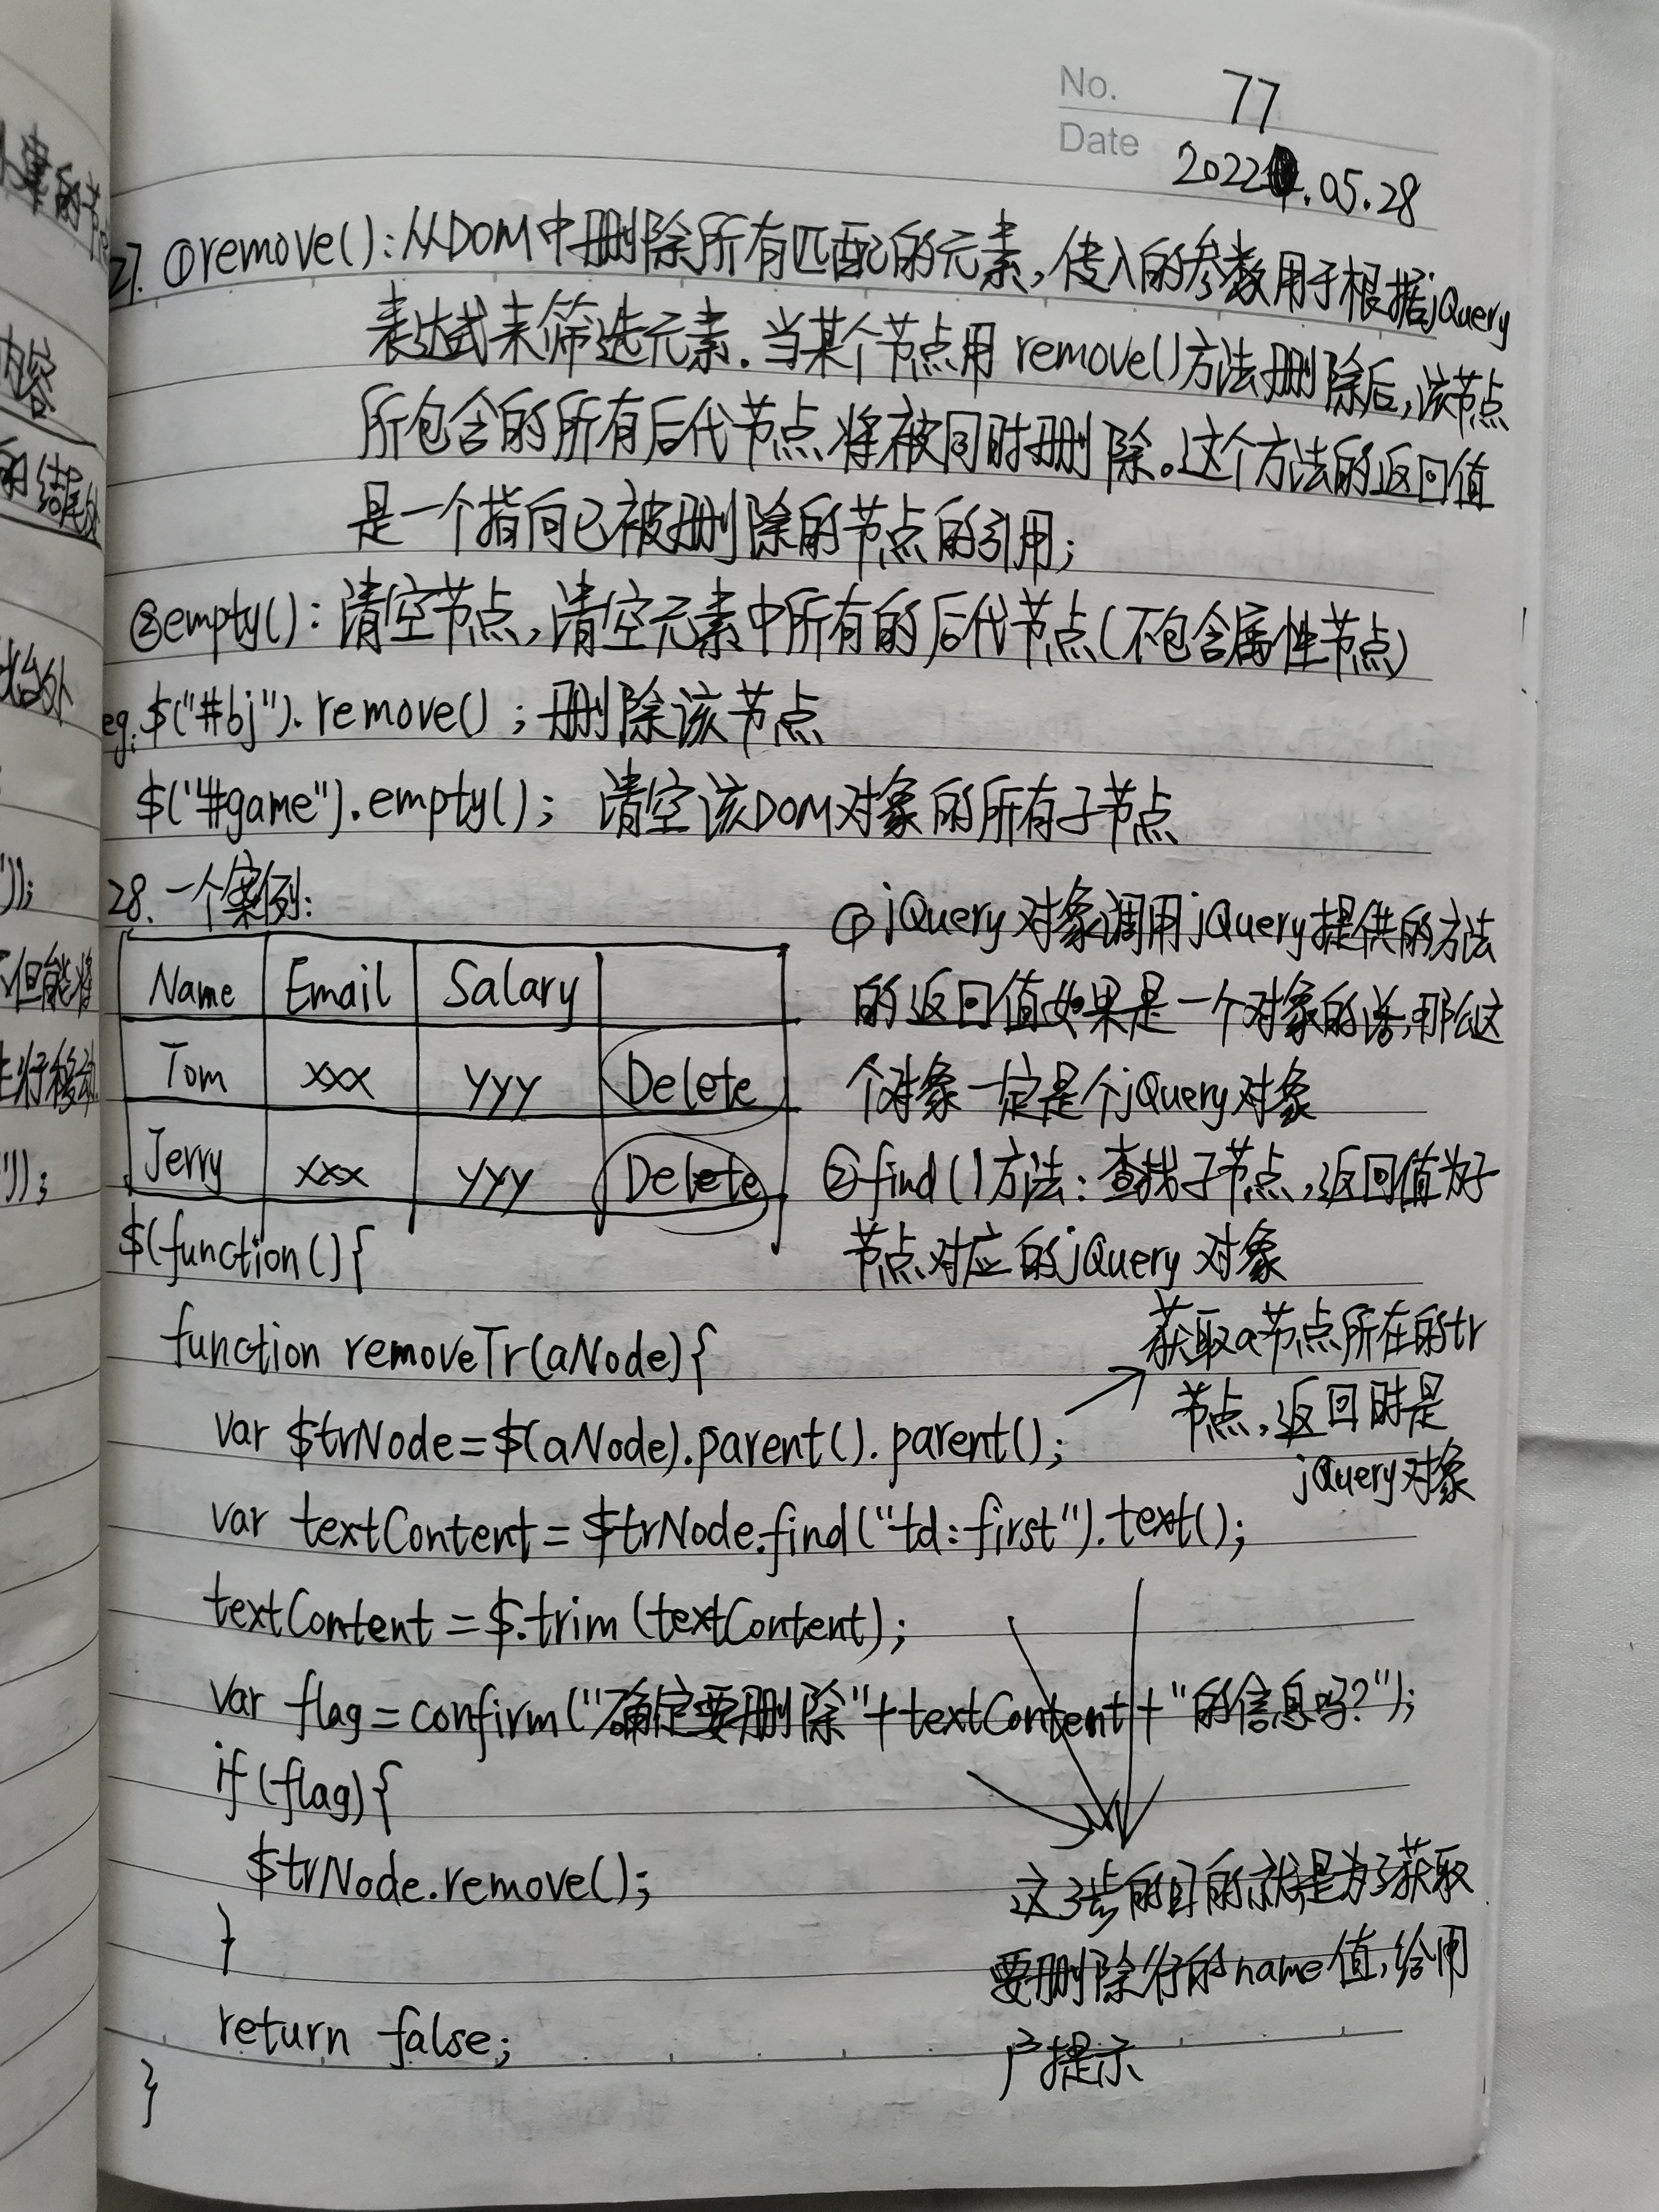 No. 77
Date 2022.05.28
27. ①remove():从DOM中删除所有匹配的元素,传入的参数用于根据jQuery
表达式来筛选元素.当某个节点用remove()方法删除后,该节点
所包含的所有后代节点将被同时删除。这个方法的返回值
是一个指向已被删除的节点的引用;
②empty():清空节点,清空元素中所有的后代节点(不包含属性节点)
eg.$("#bj").remove();删除该节点
$("#game").empty(); 清空该DOM对象的所有子节点
28.一个案例:
Name Email Salary
Tom xxx yyy Delete
Jerry xxx yyy Delete
①jQuery对象调用jQuery提供的方法
的返回值如果是一个对象的话,那么这
个对象一定是个jQuery对象
②find()方法:查找子节点,返回值为子
节点对应的jQuery对象
$(function(){
function removeTr(aNode){
获取a节点所在的tr
节点,返回时是
jQuery对象
var $trNode=$(aNode).parent().parent();
var textContent=$trNode.find("td:first").text();
textContent=$.trim(textContent);
var flag=confirm("确定要删除"+textContent+"的信息吗?");
if(flag){
$trNode.remove();
}
return false;
}
这3步的目的就是为了获取
要删除行的name值,给用
户提示
内容
的结尾处
不但能将
进行移动
'));
"));